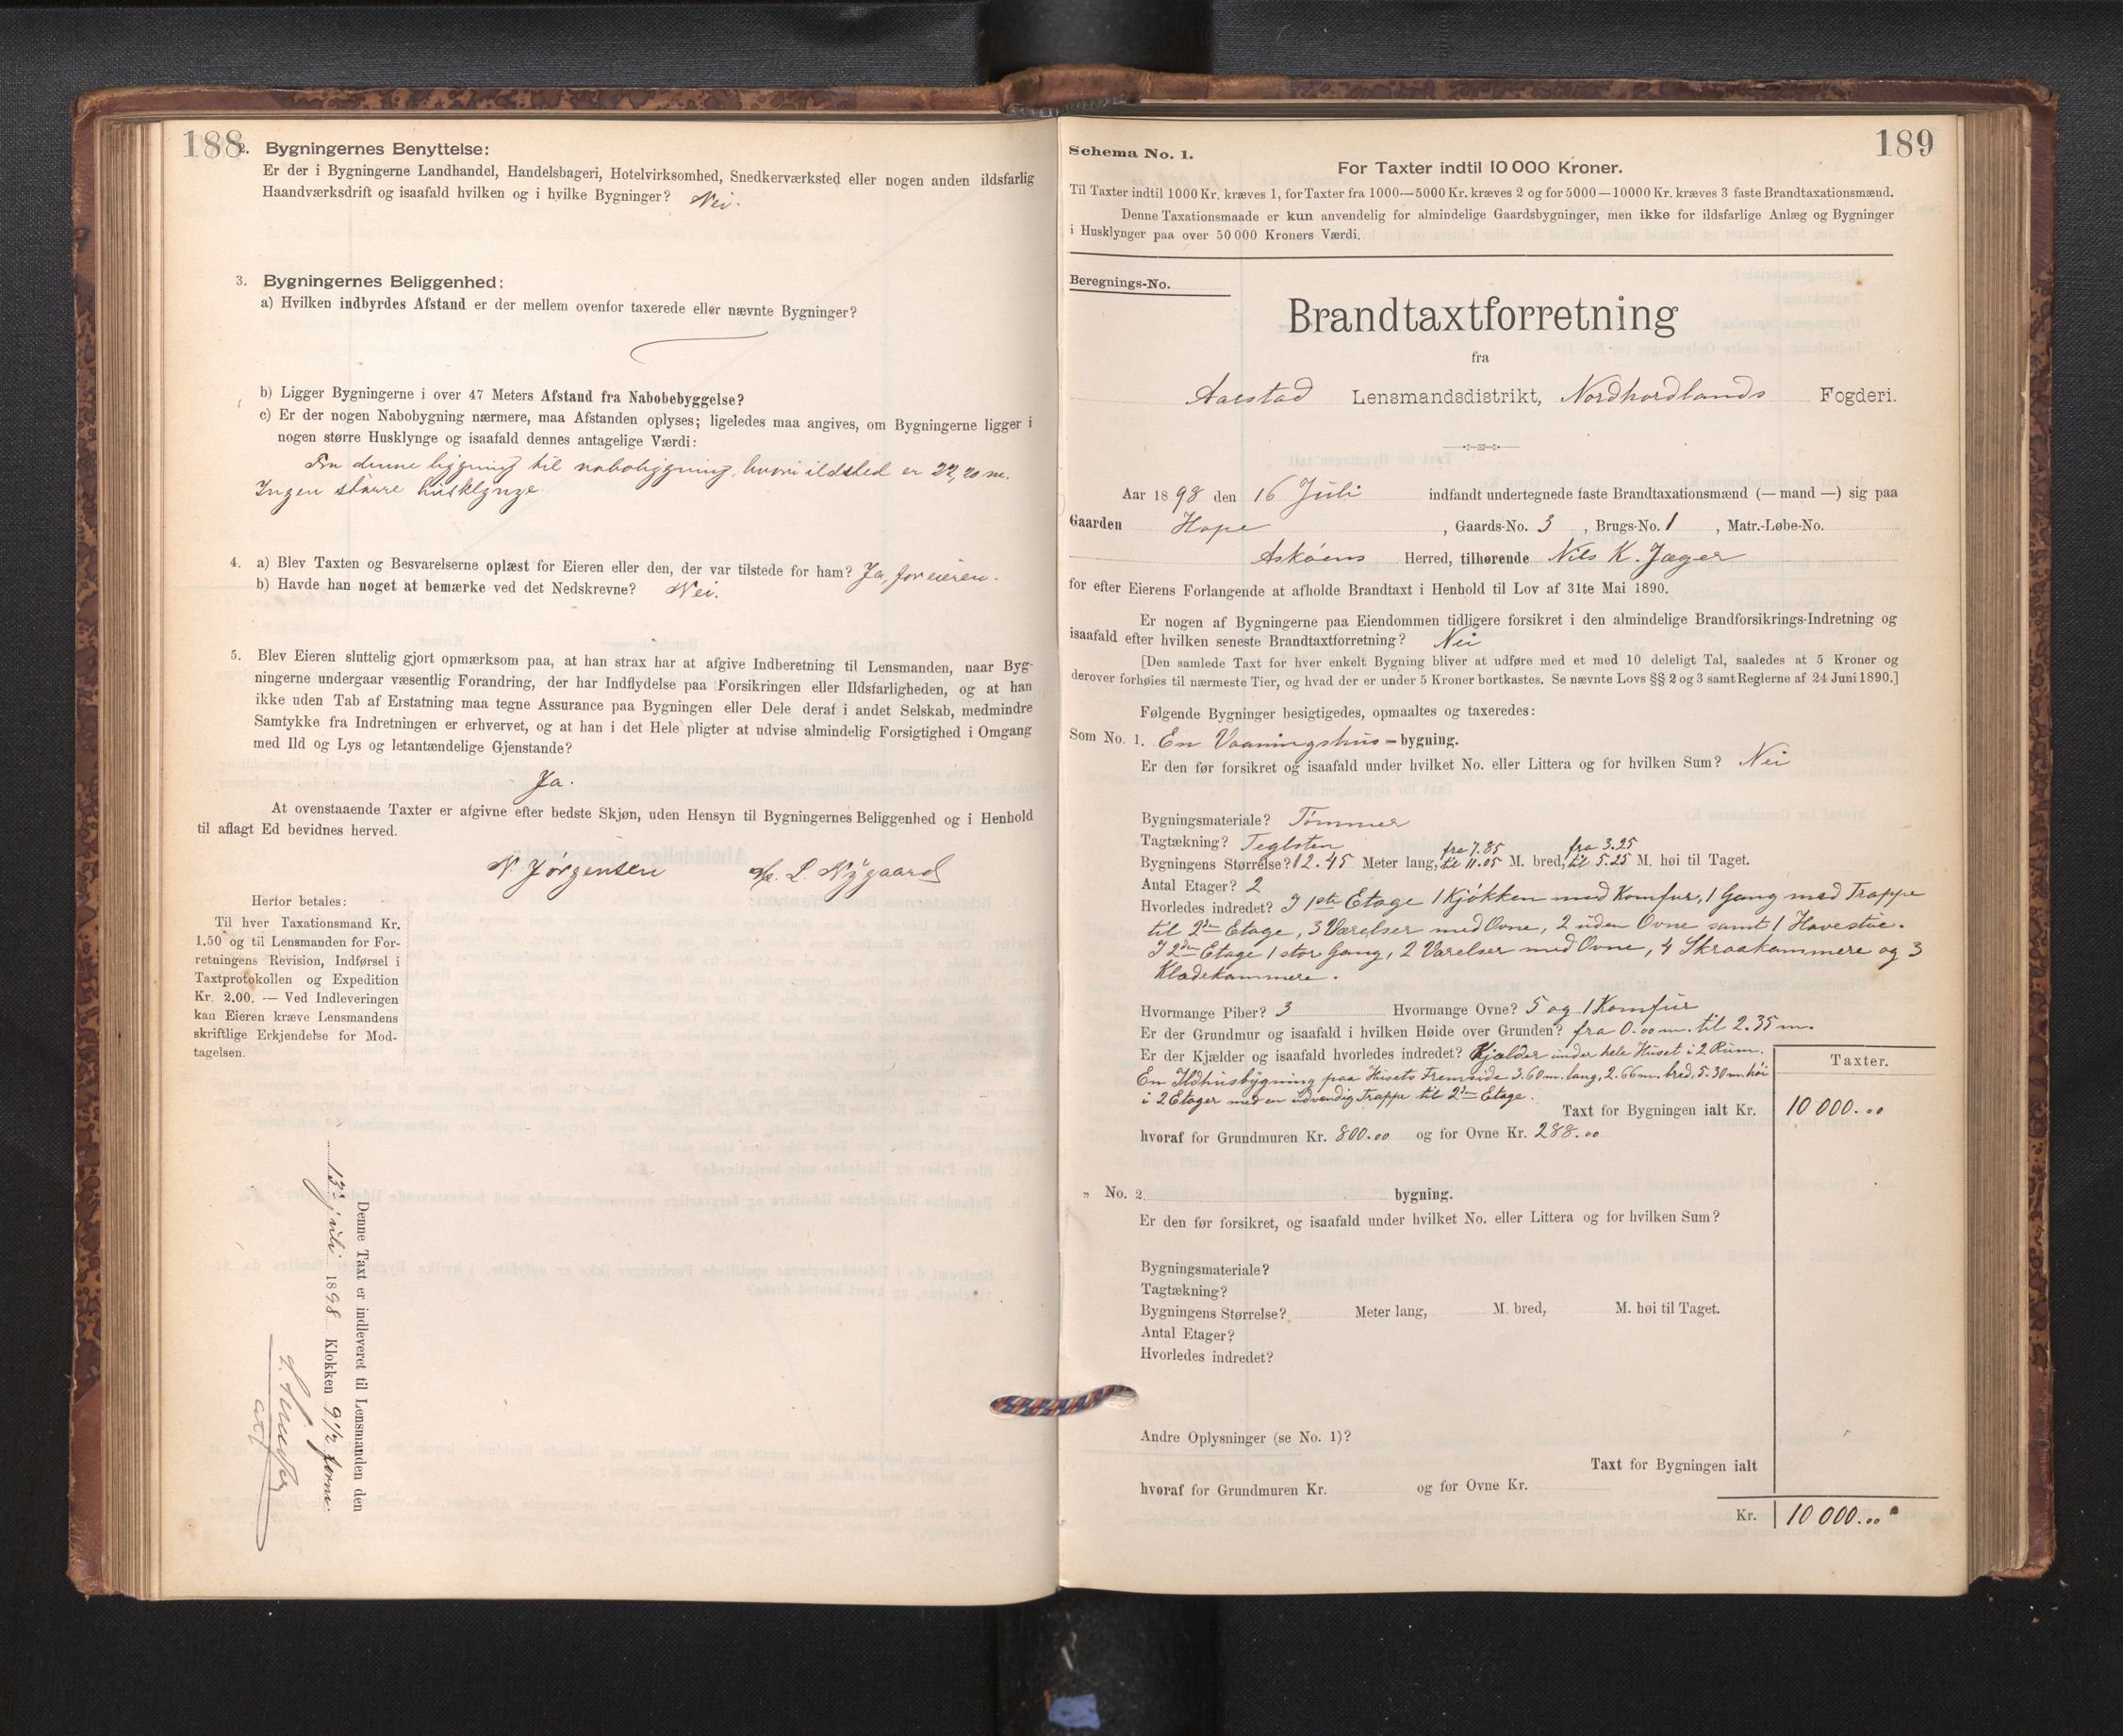 188
2. Bygningernes Benyttelse:
Er der i Bygningerne Landhandel, Handelsbageri, Hotelvirksomhed, Snedkerværksted eller nogen anden ildsfarlig
Haandværksdrift og isaafald hvilken og i hvilke Bygninger? Nei.
3. Bygningernes Beliggenhed:
a) Hvilken indbyrdes Afstand er der mellem ovenfor taxerede eller nævnte Bygninger?
b) Ligger Bygningerne i over 47 Meters Afstand fra Nabobebyggelse?
c) Er der nogen Nabobygning nærmere, maa Afstanden oplyses; ligeledes maa angives, om Bygningerne ligger i
nogen større Husklynge og isaafald dennes antagelige Værdi:
Fra denne bygning til nabobygning, hvori ildsted er 22,20 m.
Ingen større husklynge.
4. a) Blev Taxten og Besvarelserne oplæst for Eieren eller den, der var tilstede for ham? Ja, for eieren.
b) Havde han noget at bemærke ved det Nedskrevne? Nei.
5. Blev Eieren sluttelig gjort opmærksom paa, at han strax har at afgive Indberetning til Lensmanden, naar Byg-
ningerne undergaar væsentlig Forandring, der har Indflydelse paa Forsikringen eller Ildsfarligheden, og at han
ikke uden Tab af Erstatning maa tegne Assurance paa Bygningen eller Dele deraf i andet Selskab, medmindre
Samtykke fra Indretningen er erhvervet, og at han i det Hele pligter at udvise almindelig Forsigtighed i Omgang
med Ild og Lys og letantændelige Gjenstande?
Ja.
At ovenstaaende Taxter er afgivne efter bedste Skjøn, uden Hensyn til Bygningernes Beliggenhed og i Henhold
til aflagt Ed bevidnes herved.
N. Jørgensen L. Nygaard
Herfor betales:
Til hver Taxationsmand Kr.
1.50 og til Lensmanden for For-
retningens Revision, Indførsel i
Taxtprotokollen og Expedition
Kr. 2.00. — Ved Indleveringen
kan Eieren kræve Lensmandens
skriftlige Erkjendelse for Mod-
tagelsen.
Denne Taxt er indleveret til Lensmanden den
juli 1898 Klokken 9 1/2 form.
189
Schema No. 1.
For Taxter indtil 10 000 Kroner.
Til Taxter indtil 1000 Kr. kræves 1, for Taxter fra 1000—5000 Kr. kræves 2 og for 5000—10000 Kr. kræves 3 faste Brandtaxationsmænd.
Denne Taxationsmaade er kun anvendelig for almindelige Gaardsbygninger, men ikke for ildsfarlige Anlæg og Bygninger
i Husklynger paa over 50 000 Kroners Værdi.
Beregnings-No.
Brandtaxtforretning
fra
Aarstad Lensmandsdistrikt, Nordhordlands Fogderi.
Aar 1898 den 16 Juli indfandt undertegnede faste Brandtaxationsmænd (— mand —) sig paa
Gaarden Hope, Gaards-No. 3, Brugs-No. 1, Matr.-Løbe-No.
Askøens Herred, tilhørende Nils K. Jæger
for efter Eierens Forlangende at afholde Brandtaxt i Henhold til Lov af 31te Mai 1890.
Er nogen af Bygningerne paa Eiendommen tidligere forsikret i den almindelige Brandforsikrings-Indretning og
isaafald efter hvilken seneste Brandtaxtforretning? Nei
[Den samlede Taxt for hver enkelt Bygning bliver at udføre med et med 10 deleligt Tal, saaledes at 5 Kroner og
derover forhøies til nærmeste Tier, og hvad der er under 5 Kroner bortkastes. Se nævnte Lovs §§ 2 og 3 samt Reglerne af 24 Juni 1890.]
Følgende Bygninger besigtigedes, opmaaltes og taxeredes:
Som No. 1. En Vaaningshus-bygning.
Er den før forsikret og isaafald under hvilket No. eller Littera og for hvilken Sum? Nei
Bygningsmateriale? Tømmer
Tagtækning? Teglsten fra 7.85 fra 3.25
Bygningens Størrelse? 12.45 Meter lang, til 11.05 M. bred, til 5.25 M. høi til Taget.
Antal Etager? 2
Hvorledes indredet? I 1ste Etage 1 Kjøkken med Komfur, 1 Gang med Trappe
til 2den Etage, 3 Værelser med Ovne, 2 uden Ovne samt 1 Havestue.
I 2den Etage 1 stor Gang, 2 Værelser med Ovne, 4 Skraakammere og 3
Klædekammere.
Hvormange Piber? 3 Hvormange Ovne? 5 og 1 Komfur
Er der Grundmur og isaafald i hvilken Høide over Grunden? fra 0.00 m. til 2.35 m.
Er der Kjælder og isaafald hvorledes indredet? Kjælder under hele Huset i 2 Rum.
Taxter.
En Ildhusbygning paa Husets Fremside 3.60 m. lang, 2.66 m. bred, 5.30 m. høi
i 2 Etager med en udvendig Trappe til 2den Etage.
Taxt for Bygningen ialt Kr. 10 000.00
hvoraf for Grundmuren Kr. 800.00 og for Ovne Kr. 288.00
„ No. 2. bygning.
Er den før forsikret, og isaafald under hvilket No. eller Littera og for hvilken Sum?
Bygningsmateriale?
Tagtækning?
Bygningens Størrelse? Meter lang, M. bred, M. høi til Taget.
Antal Etager?
Hvorledes indredet?
Andre Oplysninger (se No. 1)?
Taxt for Bygningen ialt
hvoraf for Grundmuren Kr. og for Ovne Kr.
Kr. 10 000.00